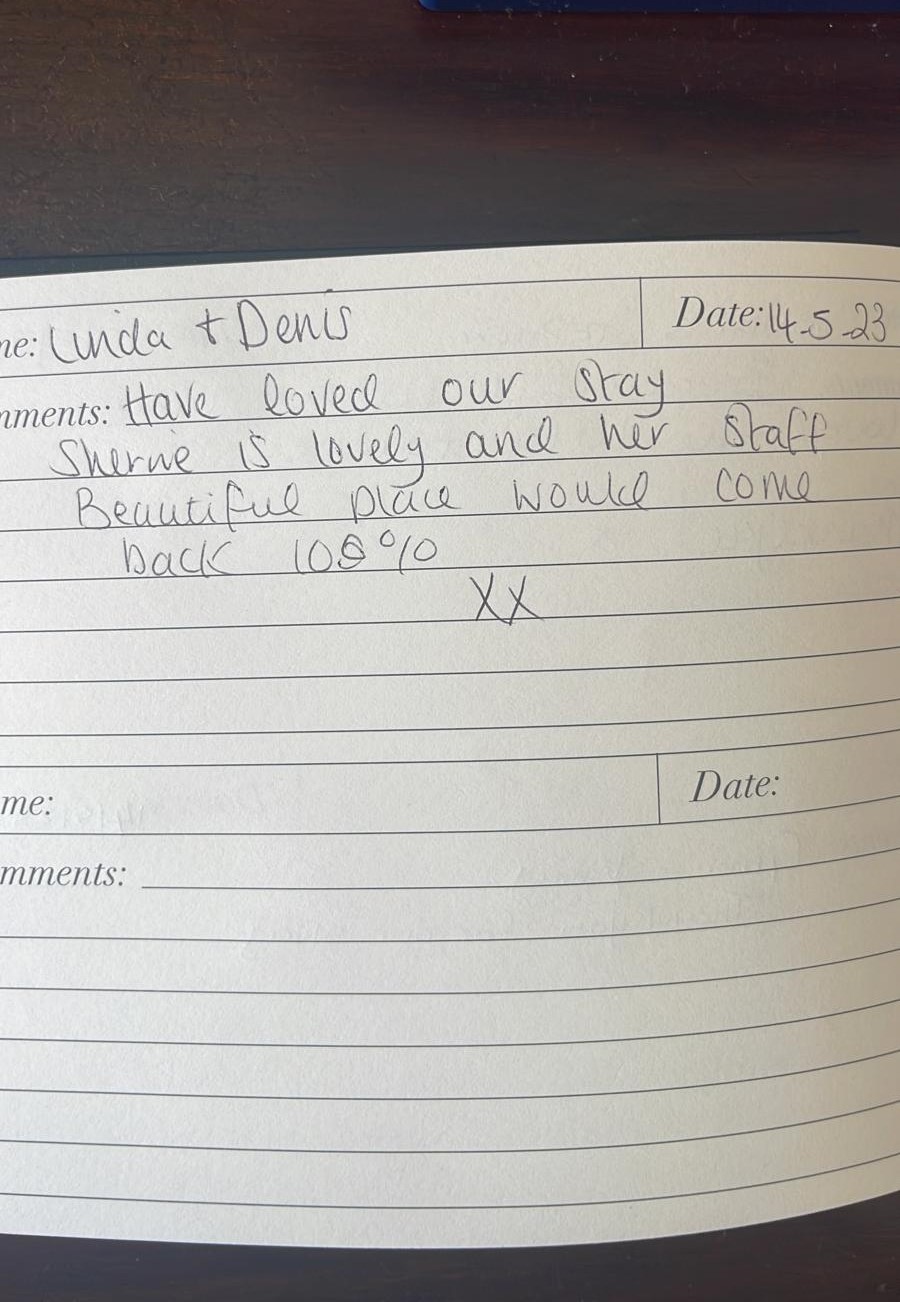 ne: Linda + Denis Date: 14.5.23
mments: Have loved our stay
Sherrie is lovely and her staff
Beautiful place would come
back 100%
XX
me: Date:
mments: